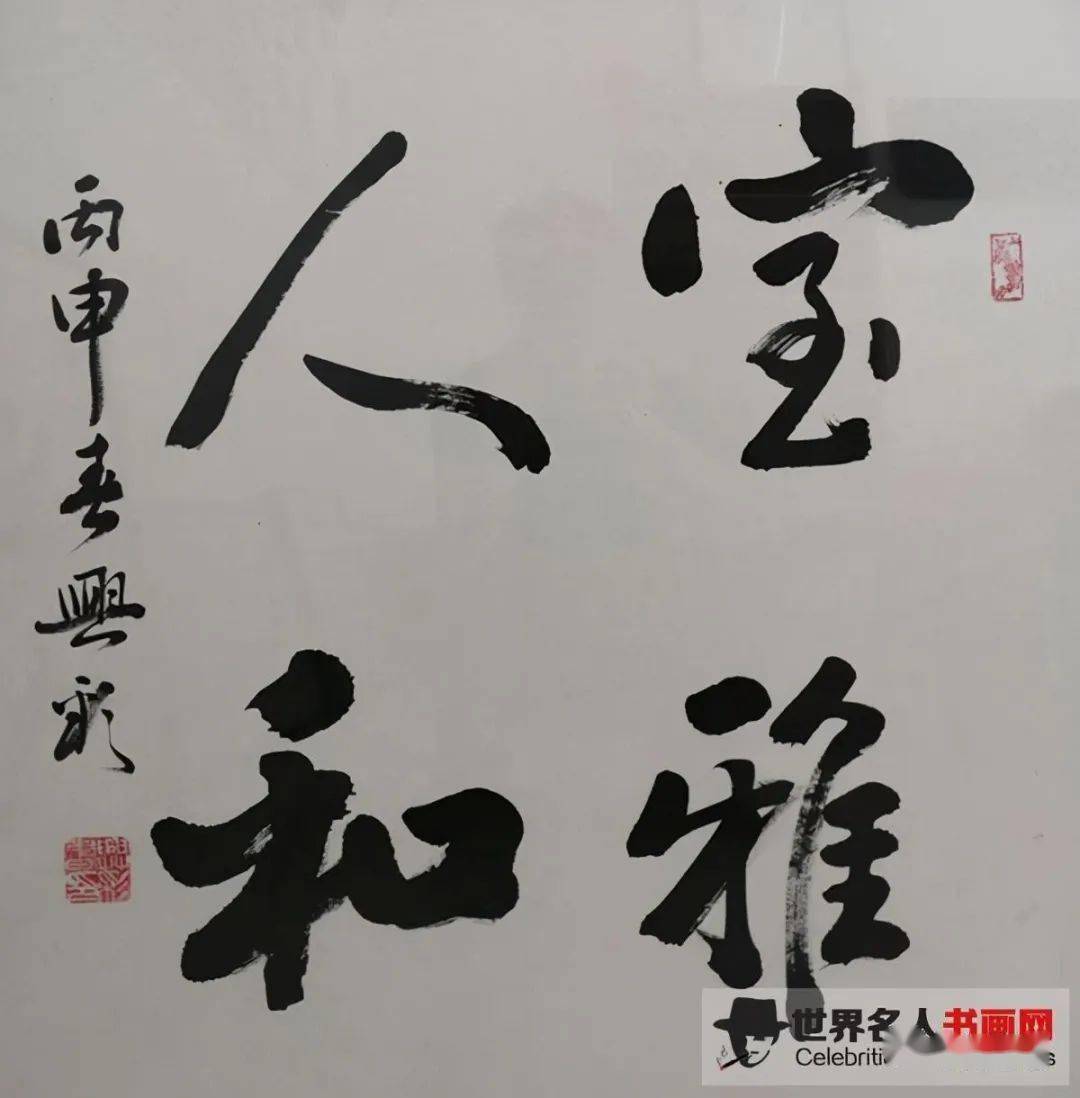 室雅
人和
丙申春興彩
世界名人书画网